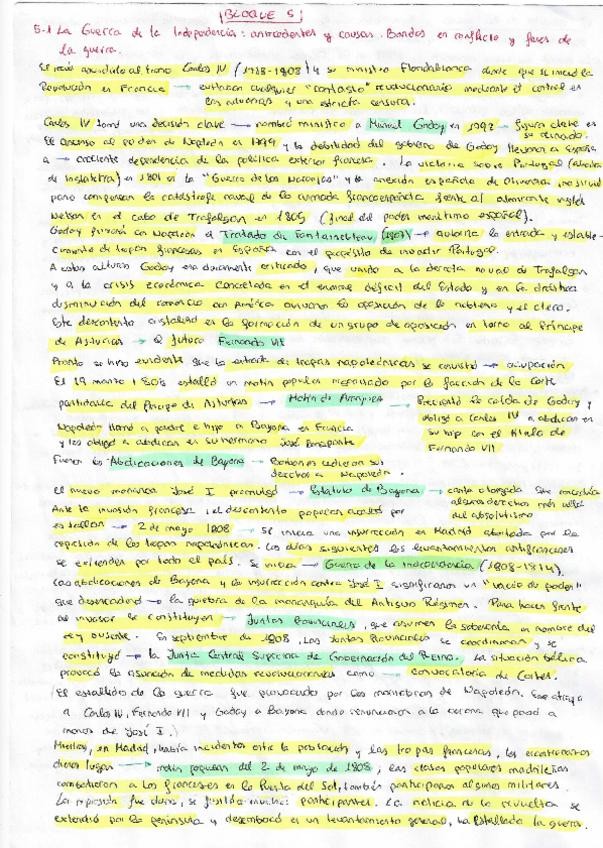 BLOQUE 5
5.1 La Guerra de la Independencia: antecedentes y causas. Bandos en conflicto y fases de
la guerra.
El inicio al trono Carlos IV (1788-1808) y su ministro Floridablanca que se inició la
Revolución en Francia → cualquier "contagio" revolucionario mediante el control en
las aduanas y una estricta censura.
Carlos IV tomó una decisión clave → nombró ministro a Manuel Godoy en 1792 → figura clave en
su reinado.
El ascenso al poder de Napoleón en 1799 y la debilidad del gobierno de Godoy llevaron a España
a → creciente dependencia de la política exterior francesa. La victoria sobre Portugal (aliada
de Inglaterra) en 1801 en la "Guerra de las Naranjas" y la anexión española de Olivenza,
para compensar la catástrofe naval de la armada francoespañola frente al almirante inglés
Nelson en el cabo de Trafalgar en 1805 (final del poder marítimo español).
Godoy firmará con Napoleón el Tratado de Fontainebleau (1807) → autoriza la entrada y estable-
cimiento de tropas francesas en España con el propósito de invadir Portugal.
A estas alturas Godoy era duramente criticado, que unido a la derrota naval de Trafalgar
y a la crisis económica concretada en el enorme déficit del Estado y en la drástica
disminución del comercio con América avivaron la oposición de la nobleza y el clero.
Este descontento cristalizó en la formación de un grupo de oposición en torno al Príncipe
de Asturias → el futuro Fernando VII
Pronto se hizo evidente que la entrada de tropas napoleónicas se convirtió → ocupación
El 19 marzo 1808 estalló un motín popular organizado por la facción de la corte
partidaria del Príncipe de Asturias → Motín de Aranjuez → Precipitó la caída de Godoy y
obligó a Carlos IV a abdicar en
su hijo con el título de
Fernando VII
Napoleón llamó a padre e hijo a Bayona en Francia
y les obligó a abdicar en su hermano José Bonaparte
Fueron las Abdicaciones de Bayona → Borbones cedieron sus
derechos a Napoleón.
El nuevo monarca José I promulgó → Estatuto de Bayona → carta otorgada que concedía
algunos derechos más allá
del absolutismo
Ante la invasión francesa, el descontento popular por
estallar → 2 de mayo 1808 → se inicia una insurrección en Madrid abortada por la
represión de las tropas napoleónicas. Los días siguientes los levantamientos antifranceses
se extienden por todo el país. Se inicia → Guerra de la Independencia (1808-1814).
Las abdicaciones de Bayona y la insurrección contra José I significaron un "vacío de poder"
que desencadenó → la quiebra de la monarquía del Antiguo Régimen. Para hacer frente
al invasor se constituyen → Juntas Provinciales, que asumen la soberanía en nombre del
rey ausente. En septiembre de 1808, las Juntas Provinciales se coordinaron y se
constituyó → la Junta Central Suprema de Gobernación del Reino. La situación bélica
provocó la asunción de medidas revolucionarias como → convocatoria de Cortes.
El estallido de la guerra fue provocado por las maniobras de Napoleón. que atrajo
a Carlos IV, Fernando VII y Godoy a Bayona donde renunciaron a la corona que pasó a
manos de José I.
Mientras, en Madrid, había incidentes entre la población y las tropas francesas, los
dieron lugar → motín popular del 2 de mayo de 1808, las clases populares madrileñas
combatieron a los franceses en la Puerta del Sol, también participaron algunos militares.
La represión fue dura, se fusiló muchos participantes. La noticia de la revuelta se
extendió por la península y desembocó en un levantamiento general, ha estallado la guerra.